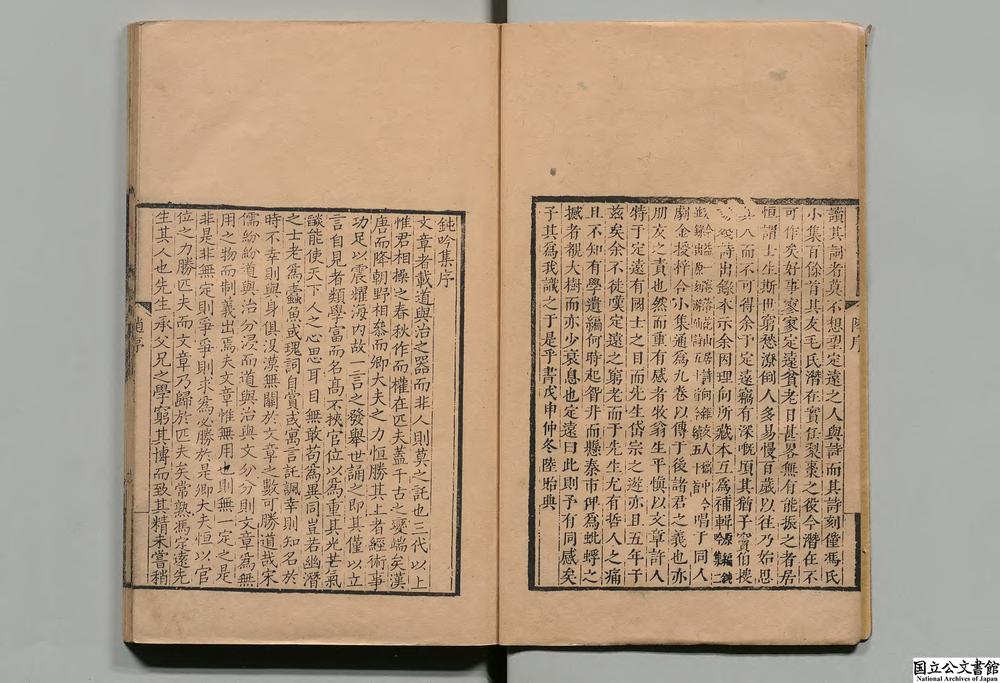 讀其詞者莫不想望定遠之人與詩而其詩刻僅馮氏
小集百餘首其友毛氏潛在實任裂棗之役今潛在不
可作矣好事家家定遠貧老日甚畧無有能振之者居
恒謂士生斯世窮愁潦倒人多易慢百歲以往乃始思
八而不可得余于定遠竊有深嘅頃其猶子竇伯搜
詩出錄本示余因理向所藏本互為補輯
唱于同人
劂金授梓合小集通為九卷以傳于後諸君之義也亦
朋友之責也然而重有感者牧翁生平慎以文章許人
特于定遠有國士之目而先生岱宗之遊亦且五年于
茲矣余不徒嘆定遠之窮老而于先生尤有哲人之痛
且不知有學遺編何時起智井而懸泰市俾為蚍蜉之
撼者覩大樹而亦少衰息也定遠曰此則予有同感矣
子其為我識之于是乎書戊申仲冬陸貽典
陸序
鈍吟集序
文章者載道與治之器而非人則莫之託也三代以上
惟君相操之春秋作而權在匹夫蓋千古之變端矣漢
唐而降朝野相叅而卿大夫之力恒勝其上者經術事
功足以震耀海內故一言之發舉世誦之即其僅以立
言自見者類學富而名高不挾官位以為重其光芒氣
燄能使天下人之心思耳目無敢苟為異同豈若幽潛
之士老為蠹魚或瑰詞自賞或寓言託諷幸則知名於
時不幸則與身俱沒漠無關於文章之數可勝道哉宋
儒紛紛道與治分浸而道與治與文分分則文章為無
用之物而制義出焉夫文章惟無用也則無一定之是
非是非無定則爭爭則求為必勝於是卿大夫恒以官
位之力勝匹夫而文章乃歸於匹夫矣常熟馮定遠先
生其人也先生承父兄之學窮其博而致其精未嘗稍
序
国立公文書館
National Archives of Japan